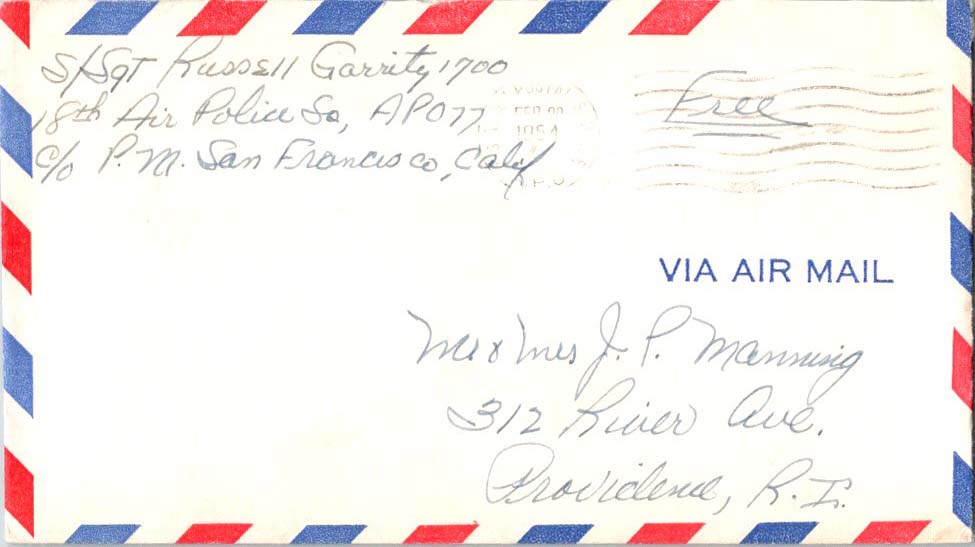 S/Sgt Russell Garrity 1700
18th Air Police Sq, APO 77
c/o P.M. San Francisco, Calif
Free
FEB
1954
A.P.O.
VIA AIR MAIL
Mr & Mrs J. P. Manning
312 River Ave.
Providence, R. I.